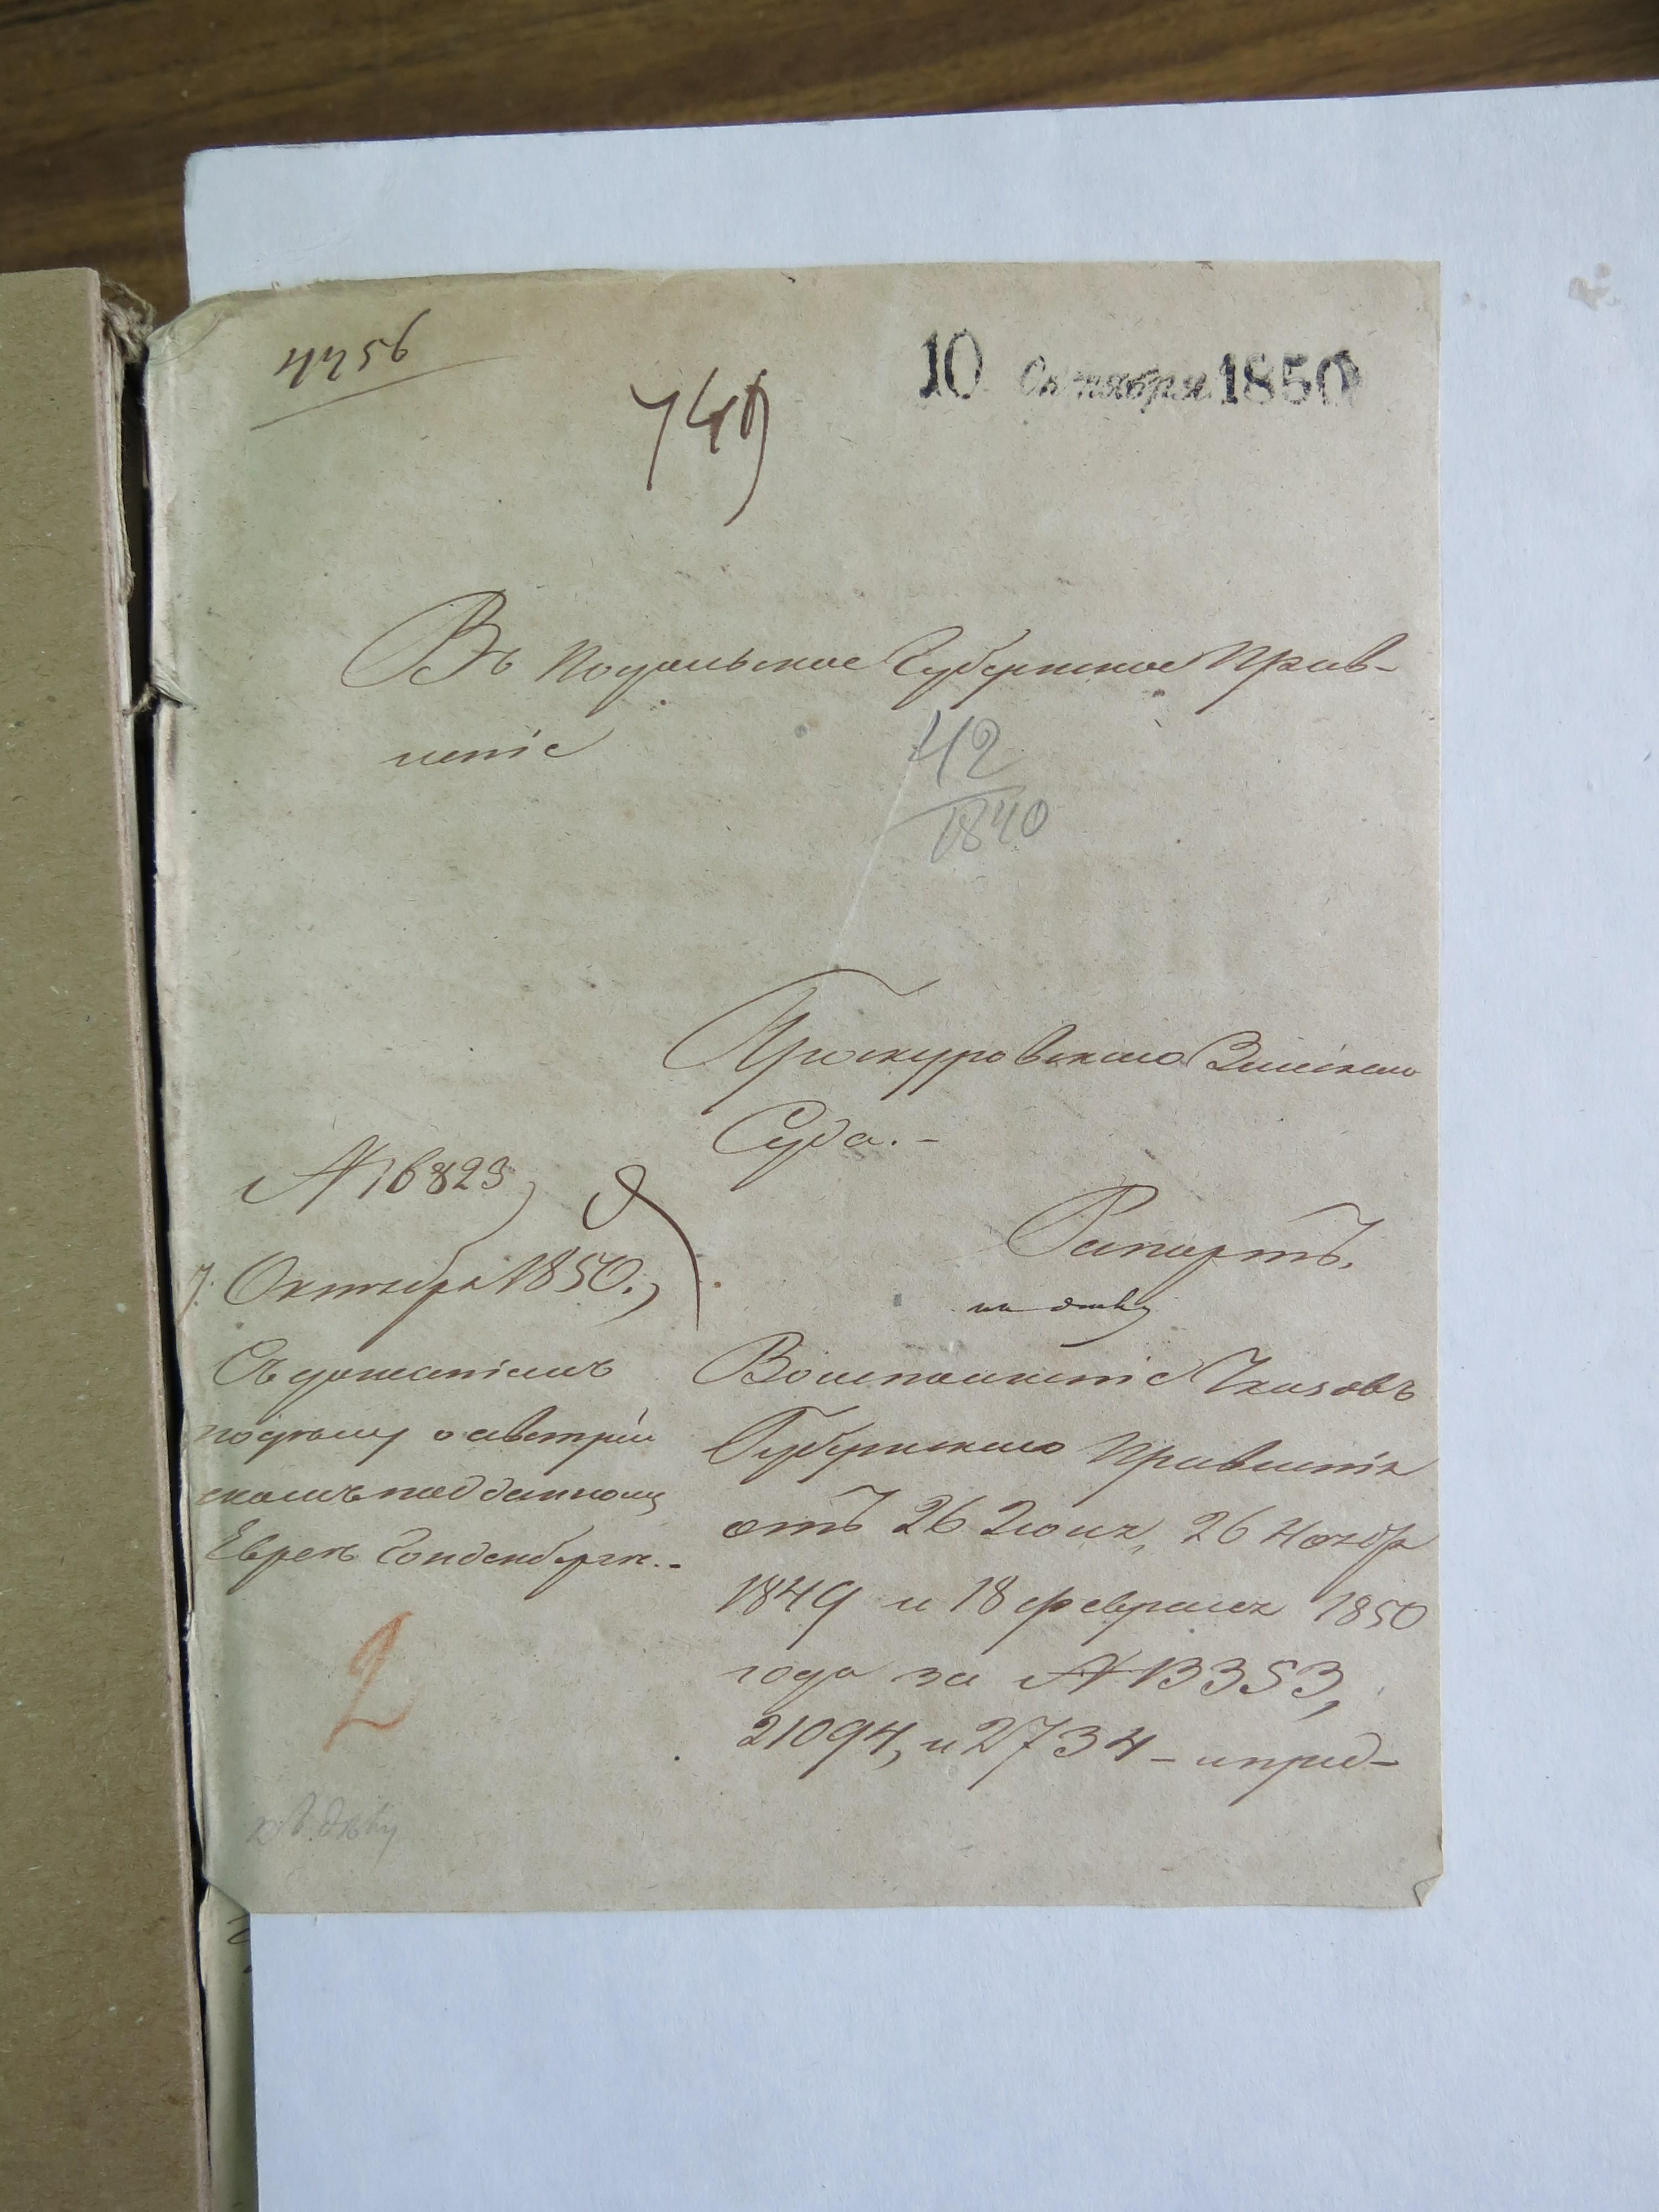 4456
749
10 Октября 1850
Въ Подольское Губернское Прав-
леніе
42
1840
Проскуровского Земского
Суда.-
№ 16823
7. Октября 1850.
Съ донесеніемъ
по делу о австрій
скомъ подданномъ
Евреѣ Гольденберге.-
2
къ дѣлу
Рапортъ.
Во исполненіе Указовъ
Губернского Правленія
отъ 26 Іюля, 26 Ноябр
1849 и 18 февраля 1850
года за № 13353,
21094, и 2734 - и пред-